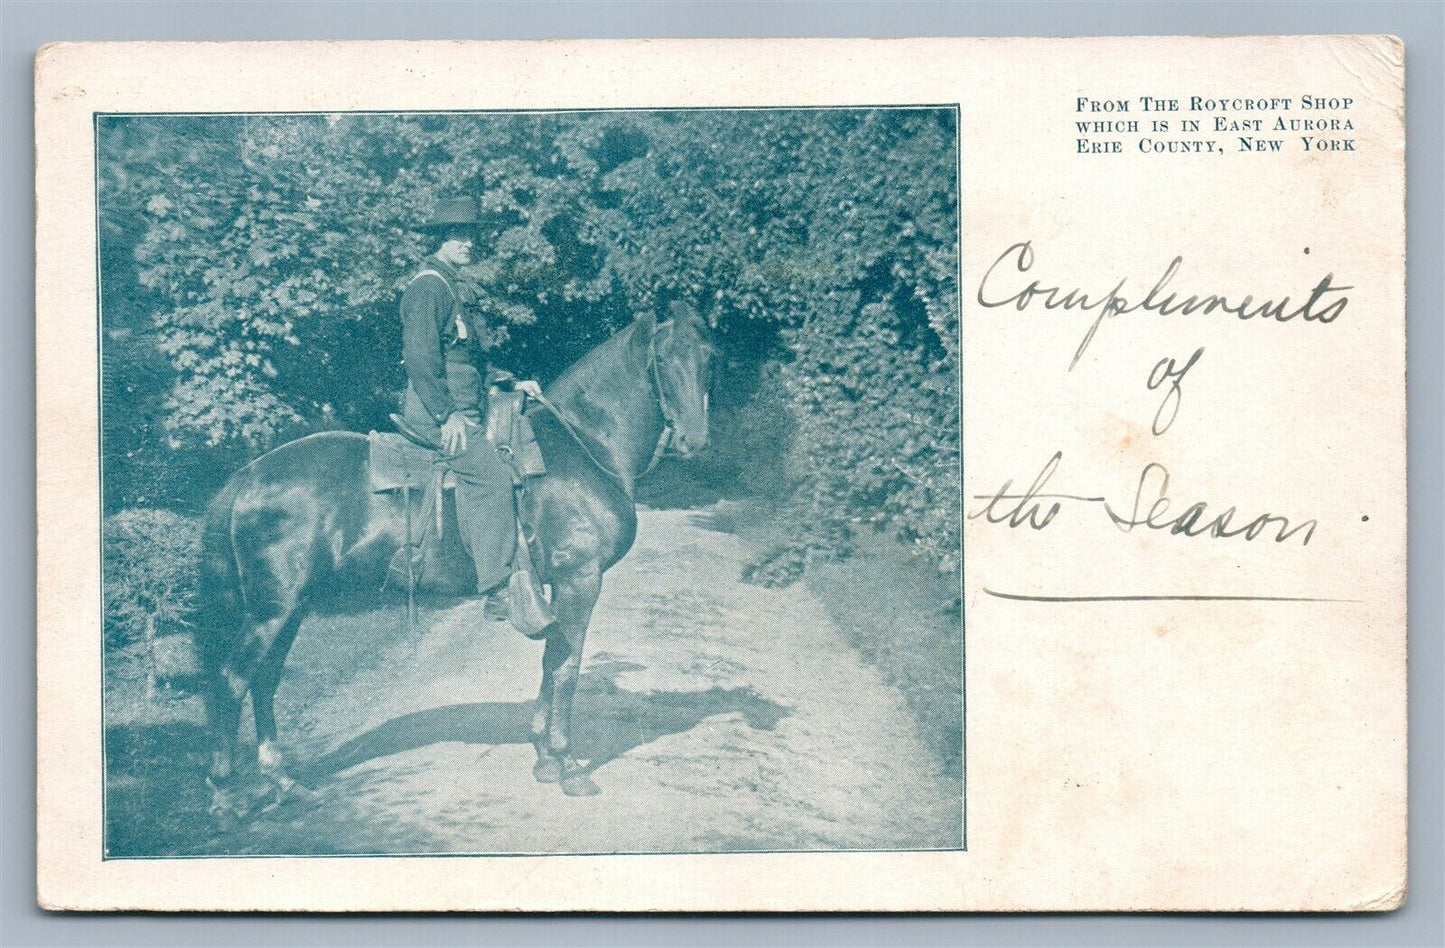 FROM THE ROYCROFT SHOP
WHICH IS IN EAST AURORA
ERIE COUNTY, NEW YORK
Compliments
of
the Season.